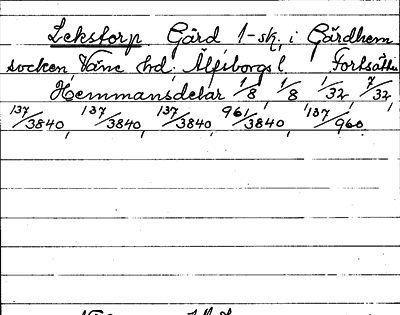 Lekstorp Gård 1-sk. i Gärdhem
socken, Väne hd. Älfsborgs l. Fortsättn
Hemmansdelar 1/8, 1/8, 1/32, 7/32,
137/3840, 137/3840, 137/3840, 961/3840, 137/960.